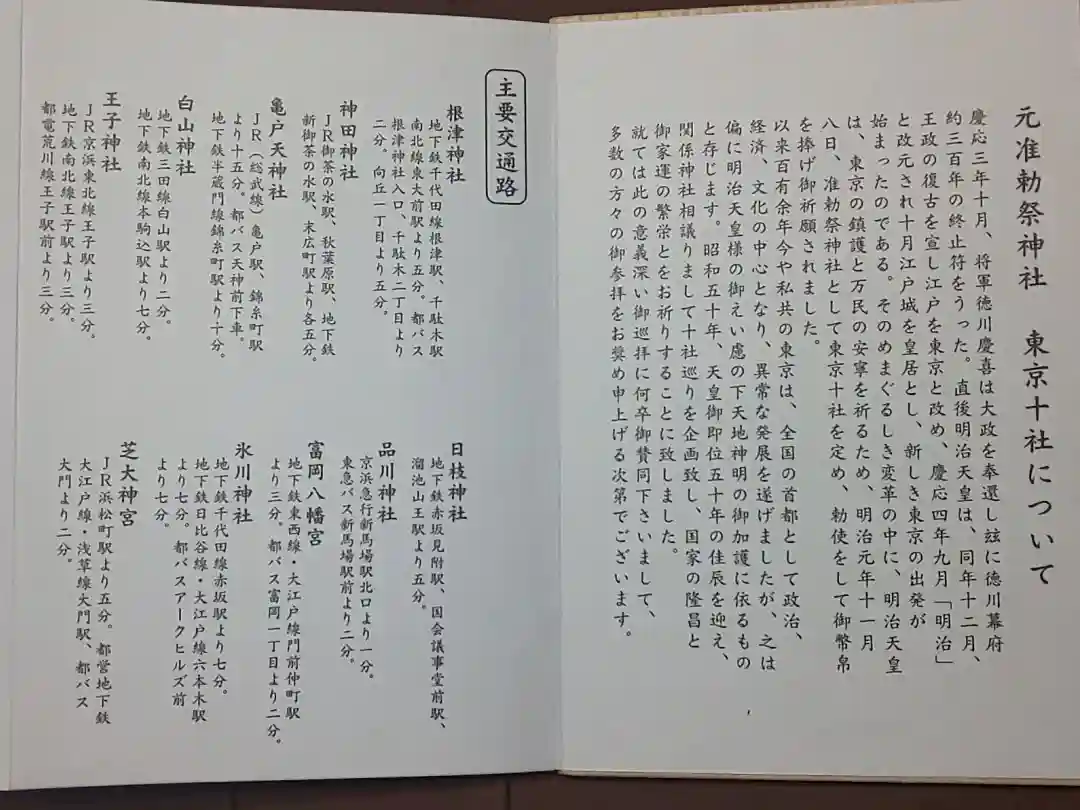 元准勅祭神社　東京十社について
慶応三年十月、将軍徳川慶喜は大政を奉還し玆に徳川幕府
約三百年の終止符をうった。直後明治天皇は、同年十二月、
王政の復古を宣し江戸を東京と改め、慶応四年九月「明治」
と改元され十月江戸城を皇居とし、新しき東京の出発が
始まったのである。そのめまぐるしき変革の中に、明治天皇
は、東京の鎮護と万民の安寧を祈るため、明治元年十一月
八日、准勅祭神社として東京十社を定め、勅使をして御幣帛
を捧げ御祈願されました。
以来百有余年今や私共の東京は、全国の首都として政治、
経済、文化の中心となり、異常な発展を遂げましたが、之は
偏に明治天皇様の御えい慮の下天地神明の御加護に依るもの
と存じます。昭和五十年、天皇御即位五十年の佳辰を迎え、
関係神社相議りまして十社巡りを企画致し、国家の隆昌と
御家運の繁栄とをお祈りすることに致しました。
就ては此の意義深い御巡拝に何卒御賛同下さいまして、
多数の方々の御参拝をお奨め申上げる次第でございます。
主要交通路
根津神社
地下鉄千代田線根津駅、千駄木駅
南北線東大前駅より五分。都バス
根津神社入口、千駄木二丁目より
二分。向丘一丁目より五分。
神田神社
ＪＲ御茶の水駅、秋葉原駅、地下鉄
新御茶の水駅、末広町駅より各五分。
亀戸天神社
ＪＲ（総武線）亀戸駅、錦糸町駅
より十五分。都バス天神前下車。
地下鉄半蔵門線錦糸町駅より十分。
白山神社
地下鉄三田線白山駅より二分。
地下鉄南北線本駒込駅より七分。
王子神社
ＪＲ京浜東北線王子駅より三分。
地下鉄南北線王子駅より三分。
都電荒川線王子駅前より三分。
日枝神社
地下鉄赤坂見附駅、国会議事堂前駅、
溜池山王駅より五分。
品川神社
京浜急行新馬場駅北口より一分。
東急バス新馬場駅前より二分。
富岡八幡宮
地下鉄東西線・大江戸線門前仲町駅
より三分。都バス富岡一丁目より二分。
氷川神社
地下鉄千代田線赤坂駅より七分。
地下鉄日比谷線・大江戸線六本木駅
より七分。都バスアークヒルズ前
より七分。
芝大神宮
ＪＲ浜松町駅より五分。都営地下鉄
大江戸線・浅草線大門駅、都バス
大門より二分。